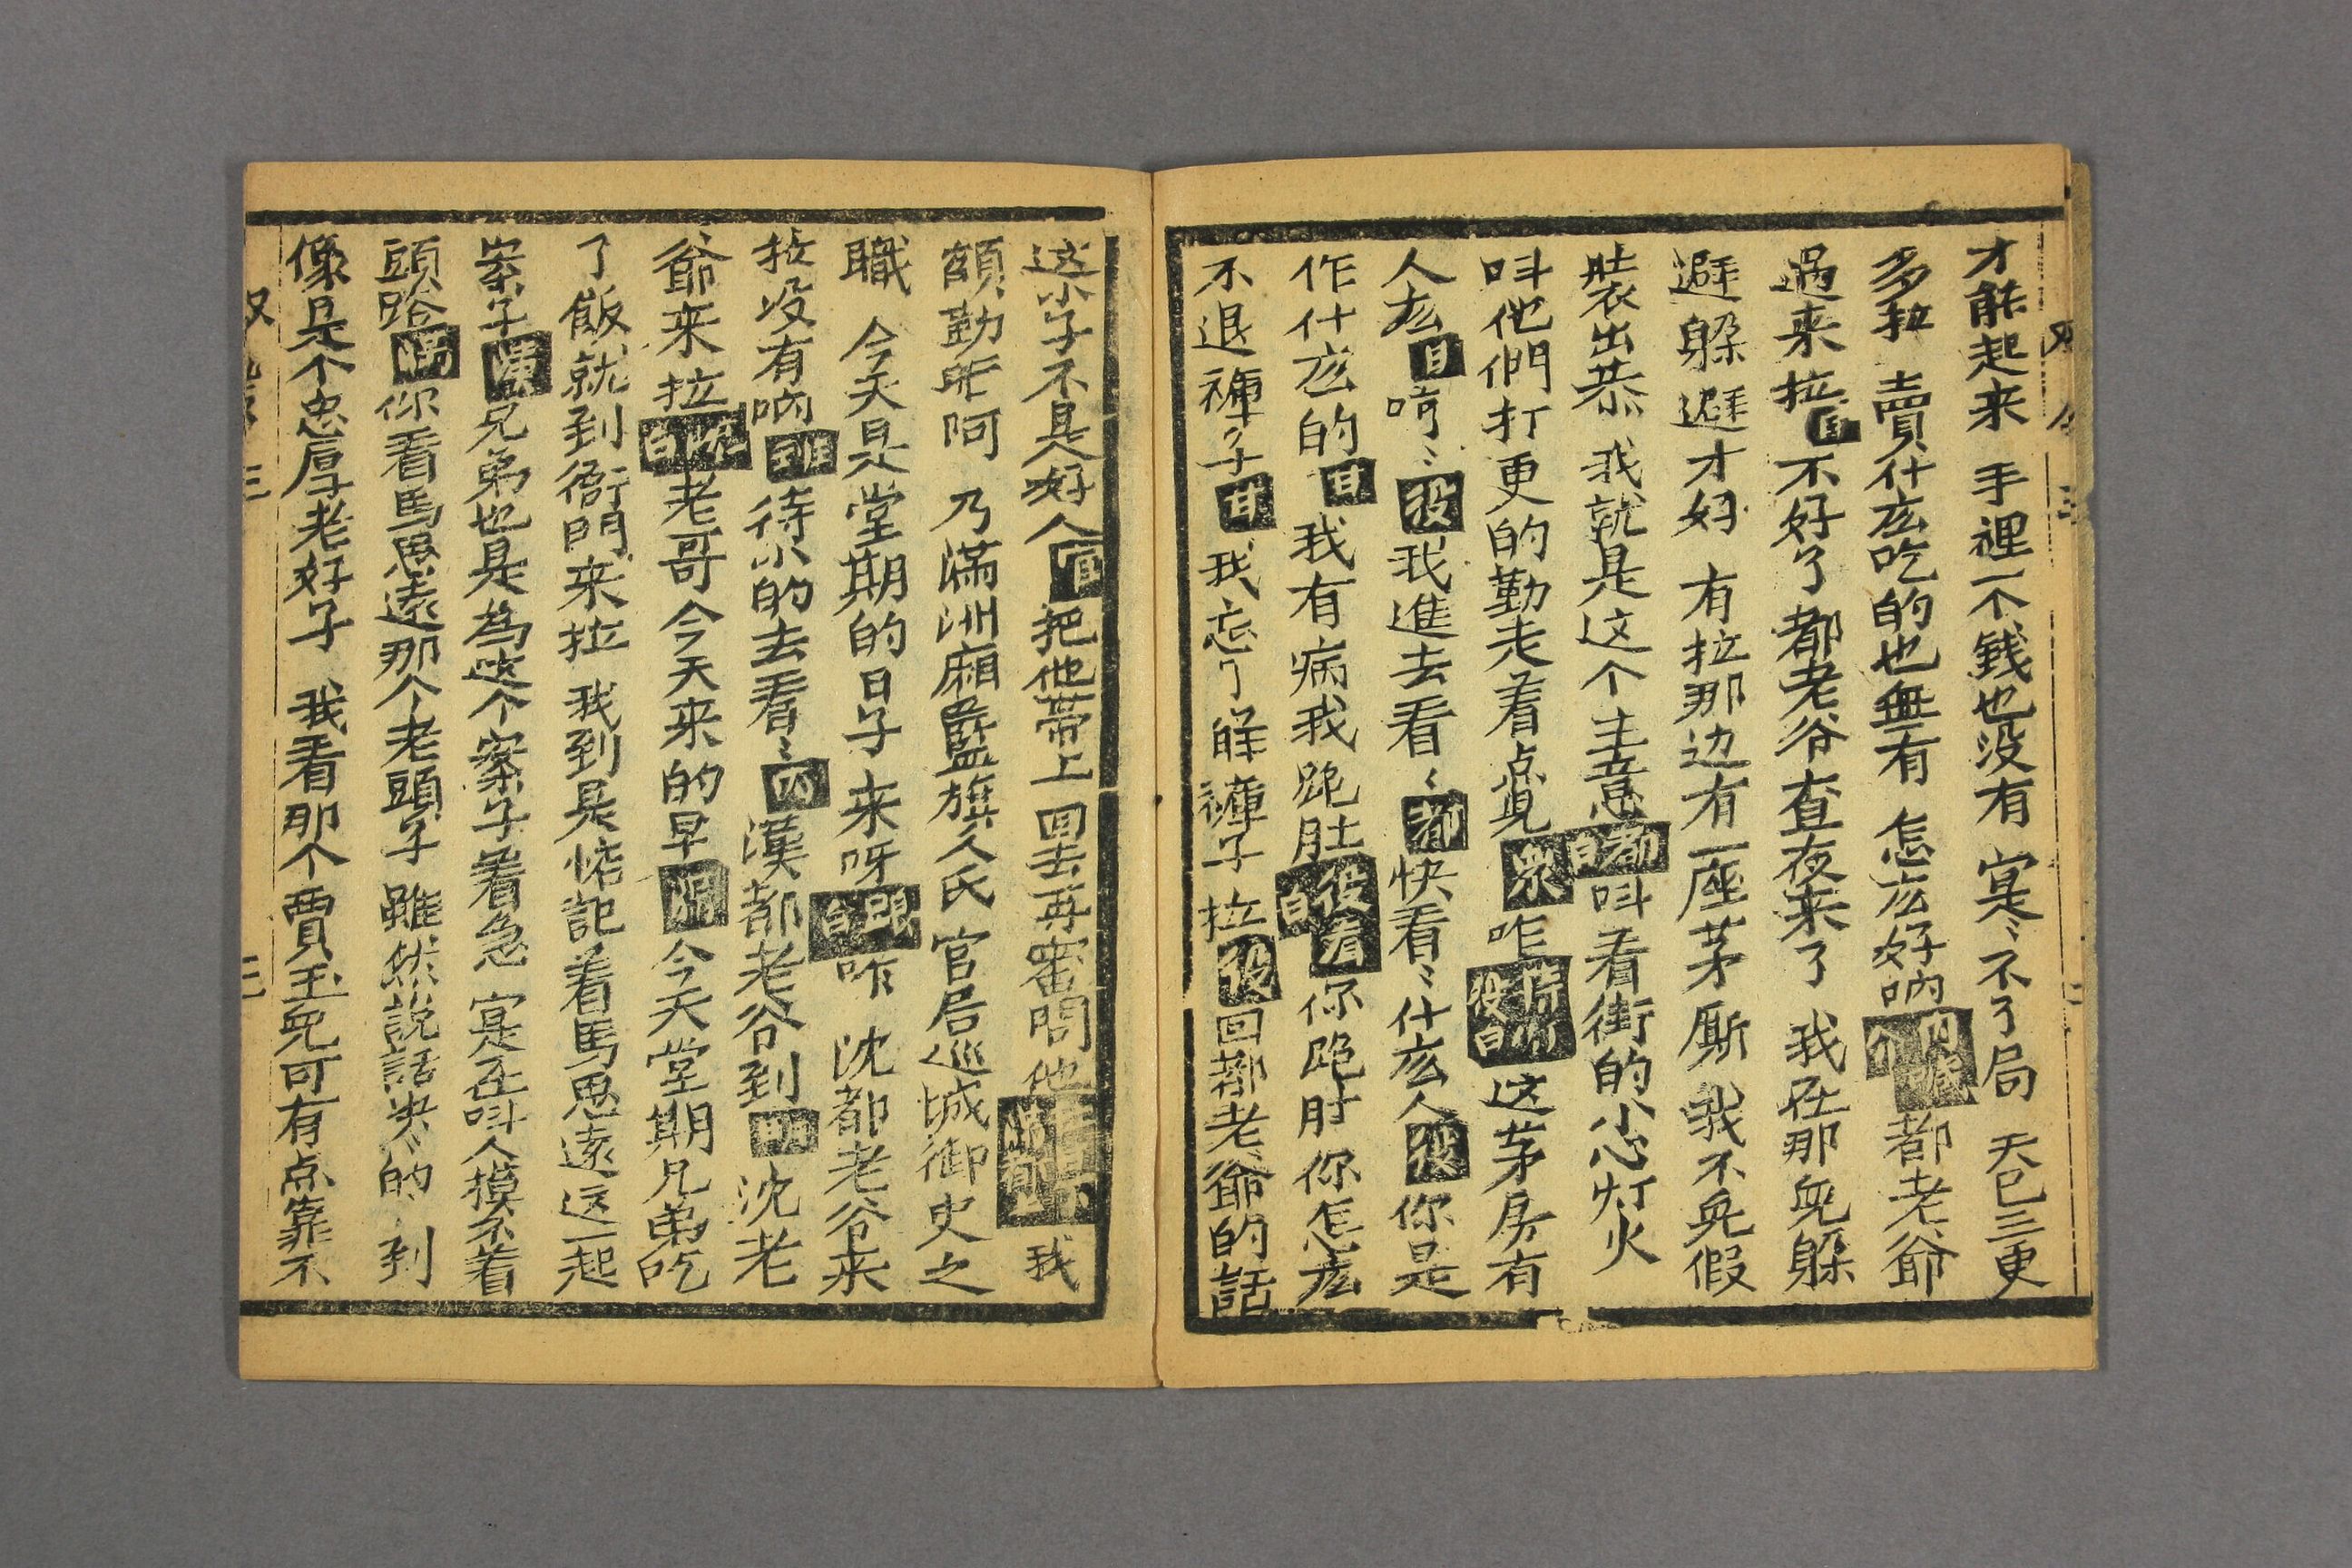 才能起来 手裡一个钱也没有 寔〻不了局 天已三更
多拉 賣什庅吃的也無有 怎庅好吶内藏介都老爺
過来拉白不好了都老爷查夜来了 我在那兒躲
避躲避才好 有拉那边有一座茅厮 我不免假
裝出恭 我就是这个主意都白呌看街的小心灯火
呌他們打更的勤走着点兒衆咋役白这茅房有
人庅白哼〻役我進去看〻都快看〻什庅人役你是
作什庅的白我有病我跑肚役看白你跑肚你怎庅
不退褲子白我忘了 觧褲子拉役回都老爺的話
这小子不是好人官把他帶上 回去再審問他都我
額勒昕呵 乃滿洲廂藍旗人氏 官居巡城御史之
職 今天是堂期的日子来呀跟白咋 沈都老爷来
拉没有吶待小的去看〻漢都老爷到沈老
爺来拉沈白老哥今天来的早滿今天堂期兄弟吃
了飯就到衙門来拉 我到是惦記着馬思遠这一起
案子漢兄弟也是為这个案子着急 寔在呌人摸不着
頭路滿你看馬思遠那个老頭子 雖然說話决〻的 到
像是个忠厚老好子 我看那个賈玉兒可有点靠不
三